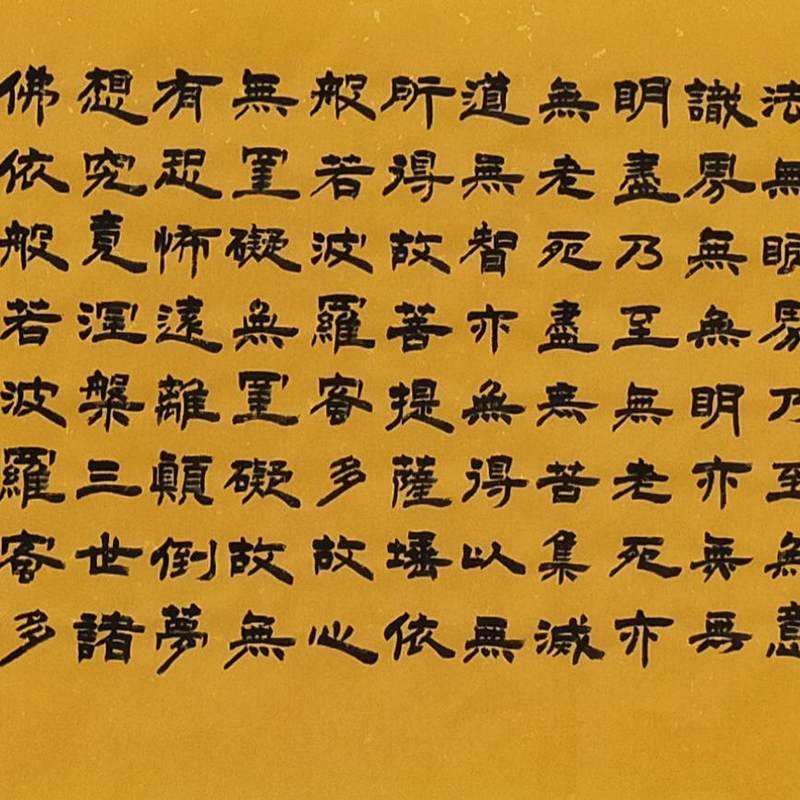 法無眼界乃至無意
識界無無明亦無無
明盡乃至無老死亦
無老死盡無苦集滅
道無智亦無得以無
所得故菩提薩埵依
般若波羅蜜多故心
無罣礙無罣礙故無
有恐怖遠離顛倒夢
想究竟涅槃三世諸
佛依般若波羅蜜多